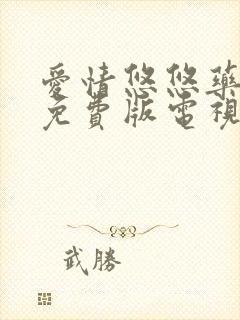 愛情悠悠藥
免費版電視
武勝